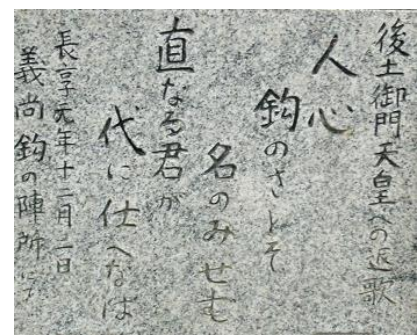 後土御門天皇への返歌
人心
鈎のさとそ
名のみせむ
直なる君が
代に仕へなは
長享元年十二月二日
義尚鈎の陣所にて